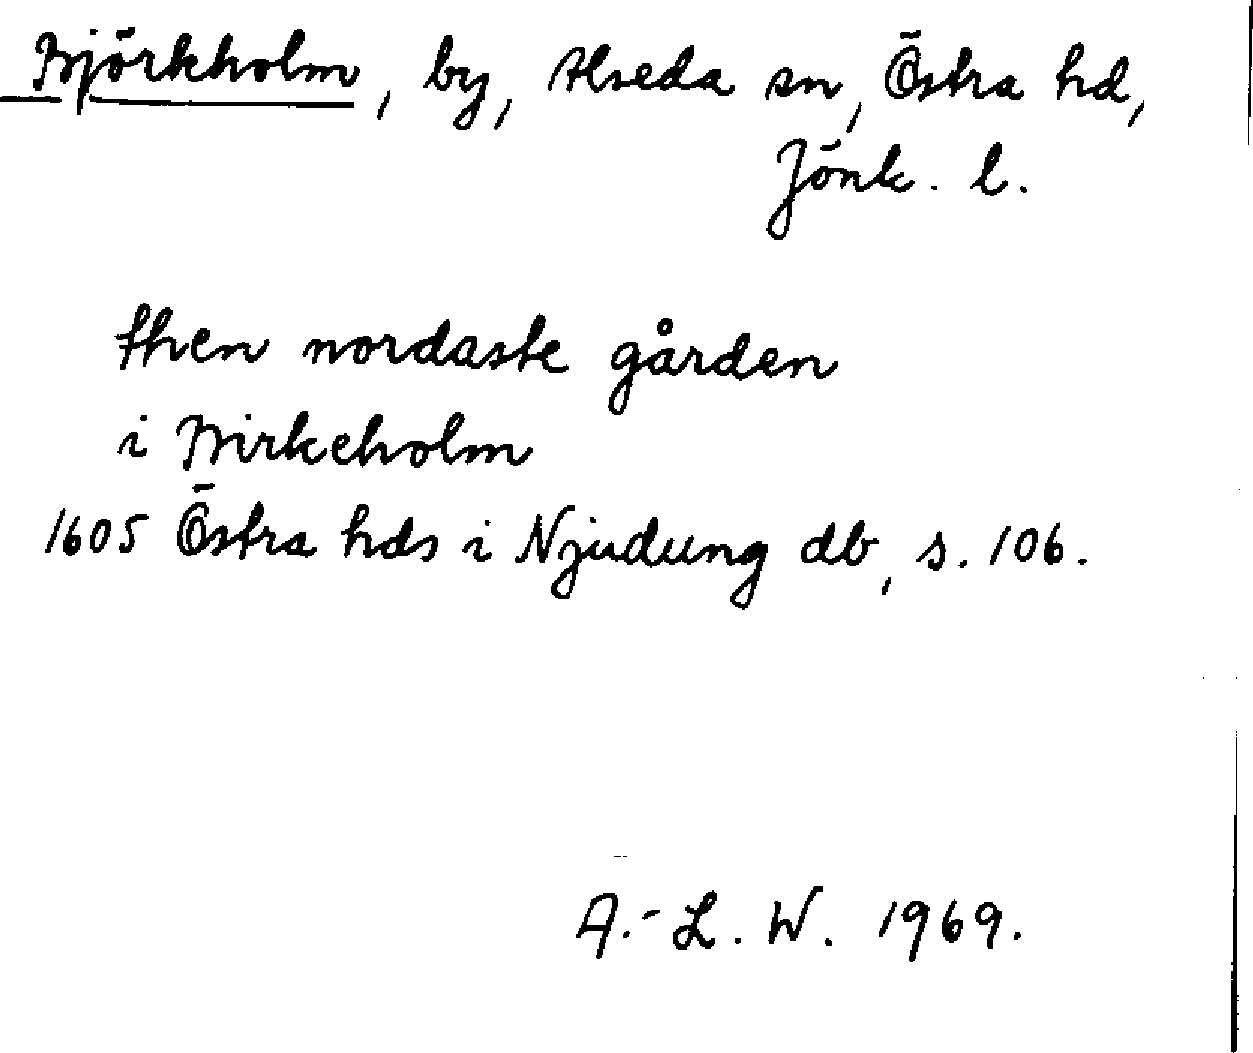 Björkholm, by, Alseda sn, Östra hd,
Jönk. l.
then nordaste gården
i Birkeholm
1605 Östra hds i Njudung db, s. 106.
A.-L. W. 1969.